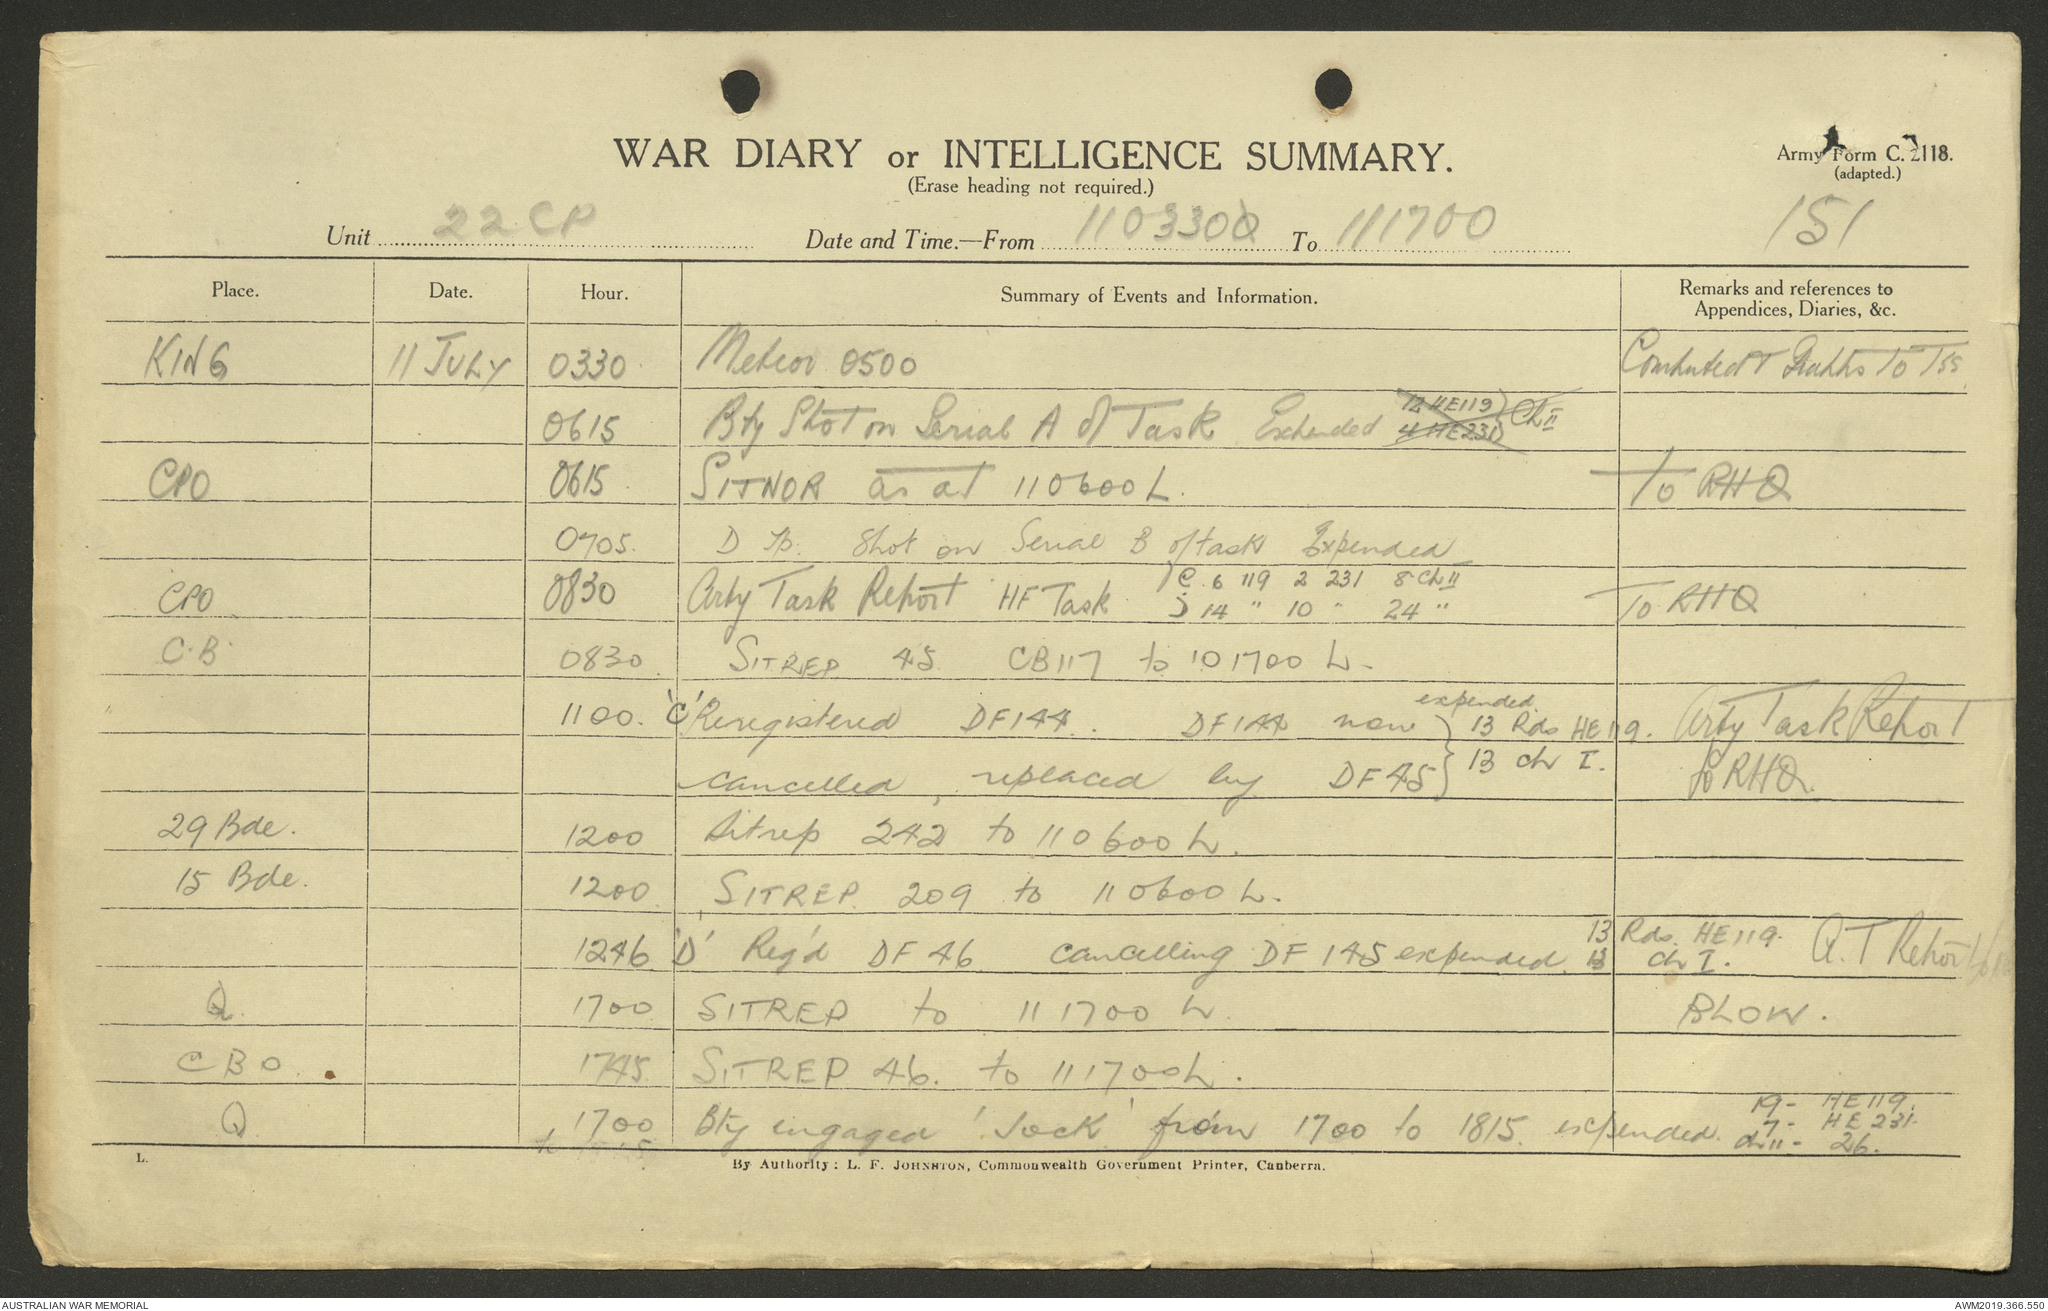 WAR DIARY or INTELLIGENCE SUMMARY.
(Erase heading not required.)
Army Form C. 2118.
(adapted.)
Unit 22 CP Date and Time.—From 110330 To 111700 151
Place. Date. Hour. Summary of Events and Information. Remarks and references to
Appendices, Diaries, &c.
KING 11 JULY 0330 Meteor 0500 Computed & Graphs to Tps
0615 Bty Shot on Serial A of Task Expended 12 HE119 } Ch II
4 HE231
CPO 0615 SITNOR as at 110600L. To RHQ
0705. D Tp. Shot on Serial B of task Expended
CPO 0830 Arty Task Report HF Task } C. 6 119 2 231 8 Ch II To RHQ
14 " 10 " 24 "
C.B. 0830 SITREP 45 CB117 to 101700 L.
1100. 'C' Reregistered DF144. DF144 now } expended 13 Rds HE119. Arty Task Report
cancelled, replaced by DF45 } 13 ch I. to RHQ.
29 Bde. 1200 Sitrep 242 to 110600 L.
15 Bde. 1200 SITREP 209 to 110600 L.
1246 'D' Reg'd DF 46 cancelling DF 145 expended 13 Rds. HE119. A.T Report to
13 ch I.
Q. 1700 SITREP to 111700 L. BLOW.
CBO. 1745 SITREP 46. to 111700L.
Q 1700 Bty engaged 'Jock' from 1700 to 1815. expended. 19- HE119.
to 7- HE 231.
ch II- 26.
L. By Authority: L. F. JOHNSTON, Commonwealth Government Printer, Canberra.
AUSTRALIAN WAR MEMORIAL AWM2019.366.550